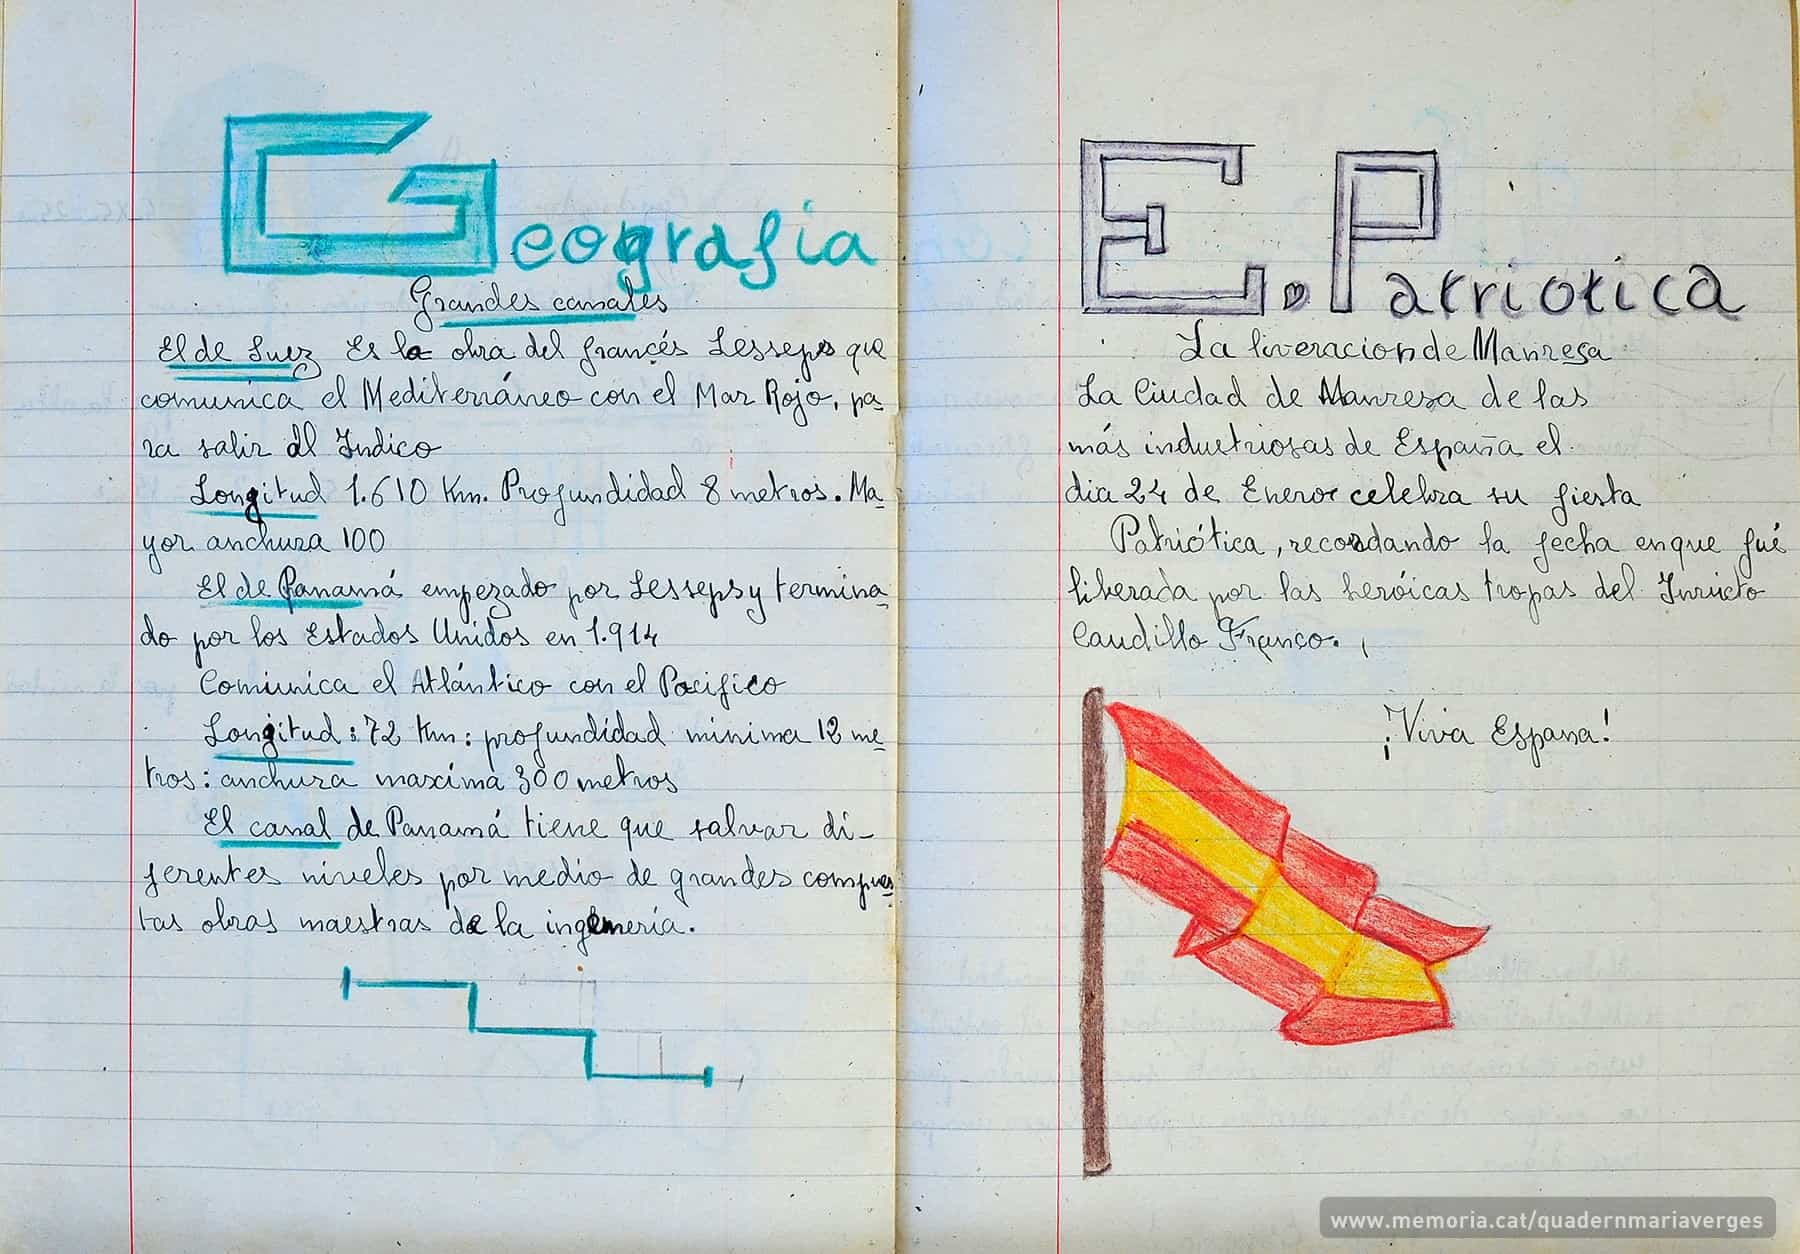 Geografia
Grandes canales
El de Suez Es la obra del francés Lesseps que
comunica el Mediterráneo con el Mar Rojo, pa-
ra salir al Indico
Longitud 1.610 Km. Profundidad 8 metros. Ma-
yor anchura 100
El de Panamá empezado por Lesseps y termina-
do por los Estados Unidos en 1.914
Comunica el Atlántico con el Pacifico
Longitud: 72 Km: profundidad minima 12 me-
tros: anchura maxima 300 metros
El canal de Panamá tiene que salvar di-
ferentes niveles por medio de grandes compuer-
tas obras maestras de la ingeneria.
E. Patriotica
La liveracion de Manresa
La Ciudad de Manresa de las
más industriosas de España el
dia 24 de Enero celebra su fiesta
Patriótica, recordando la fecha en que fué
liberada por las heróicas tropas del Invicto
Caudillo Franco.
¡Viva España!
www.memoria.cat/quadernmariaverges